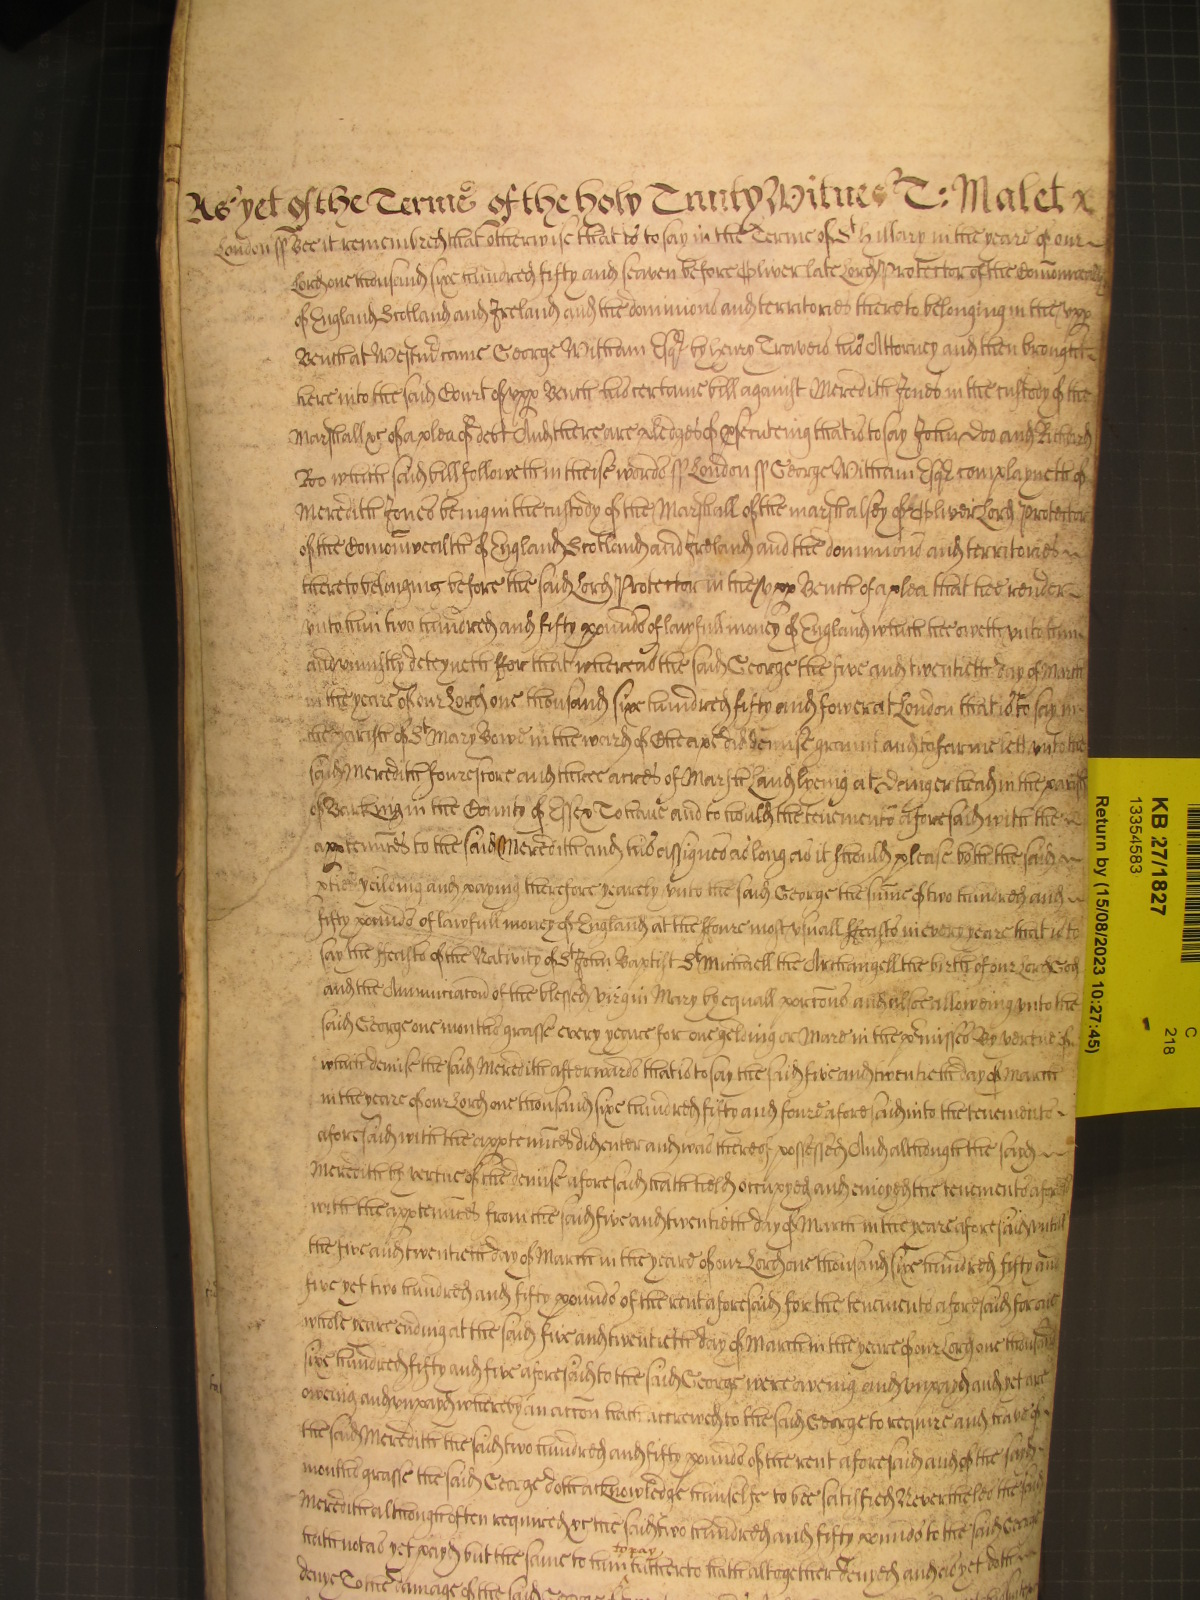 As yet of the Terme of the holy Trinity Witnes T: Malet x
London ss Bee it remembred that otherwise that is to say in the Terme of St Hillary in the yeare of our
Lord one thousand sixe hundred fifty and seaven before Oliver late Lord Protector of the Comonwealth
of England Scotland and Ireland and the dominions and territories thereto belonging in the upp
Bench at Westmr came George Wittham Esqr by Henry Travers his Attorney and then brought
here into the said Court of upp Bench his certaine bill against Meredith Jones in the custody of the
Marshall &c of a plea of debt And there are pledges of prosecuteing that is to say John Doo and Richard
Roo which said bill followeth in theise words ss London ss George Wittham Esqr complayneth of
Meredith Jones being in the custody of the Marshall of the marshalsey of Oliver Lord Protector
of the Comonwealth of England Scotland and Ireland and the dominions and territories
thereto belonging before the said Lord Protector in the upp Bench of a plea that hee render
unto him two hundred and fifty pounds of lawfull money of England which hee oweth unto him
and uniustly deteyneth For that whereas the said George the five and twentieth day of March
in the yeare of our Lord one thousand sixe hundred fifty and fower at London that is to say in
the parish of St Mary Bowe in the ward of Cheape did demise graunt and to farme lett unto the
said Meredith fourescore and three acres of Marsh Land lyeing at Dainger head in the parish
of Barking in the County of Essex To have and to hould the tenements aforesaid with the
apptennces to the said Meredith and his assignes as long as it should please both the said
pties yeilding and paying therefore yearely unto the said George the sume of two hundred and
fifty pounds of lawfull money of England at the foure most usuall Feasts in every yeare that is to
say the Feasts of the Nativity of St John Baptist St Michaell the Archangell the birth of our Lord God
and the Annunciacon of the blessed virgin Mary by equall porcons and alsoe allowing unto the
said George one months grasse every yeare for one gelding or Mare in the pmisses By vertue of
which demise the said Meredith afterwards that is to say the said five and twentieth day of March
in the yeare of our Lord one thousand sixe hundred fifty and foure aforesaid into the tenements
aforesaid with the apptennces did enter and was thereof possessed And although the said
Meredith by vertue of the demise aforesaid hath held occupyed and enioyed the tenements aforesd
with the apptennces from the said five and twentieth day of March in the yeare aforesaid untill
the five and twentieth day of March in the yeare of our Lord one thousand sixe hundred fifty and
five yet two hundred and fifty pounds of the rent aforesaid for the tenements aforesaid for one
whole yeare ending at the said five and twentieth day of March in the yeare of our Lord one thousand
sixe hundred fifty and five aforesaid to the said George were oweing and unpayd and yet are
oweing and unpayd whereby an accon hath accrewed to the said George to require and have of
the said Meredith the said two hundred and fifty pounds of the rent aforesaid and of the said
months grasse the said George doth acknowledge himselfe to bee satisfied Neverthelesse the said
Meredith although often required &c the said two hundred and fifty pounds to the said George
hath not as yet payd but the same to him to pay hitherto hath altogether denyed and as yet doth
denye To the damage of the said George
KB 27/1827
13354583
Return by (15/08/2023 10:27:45)
C
218